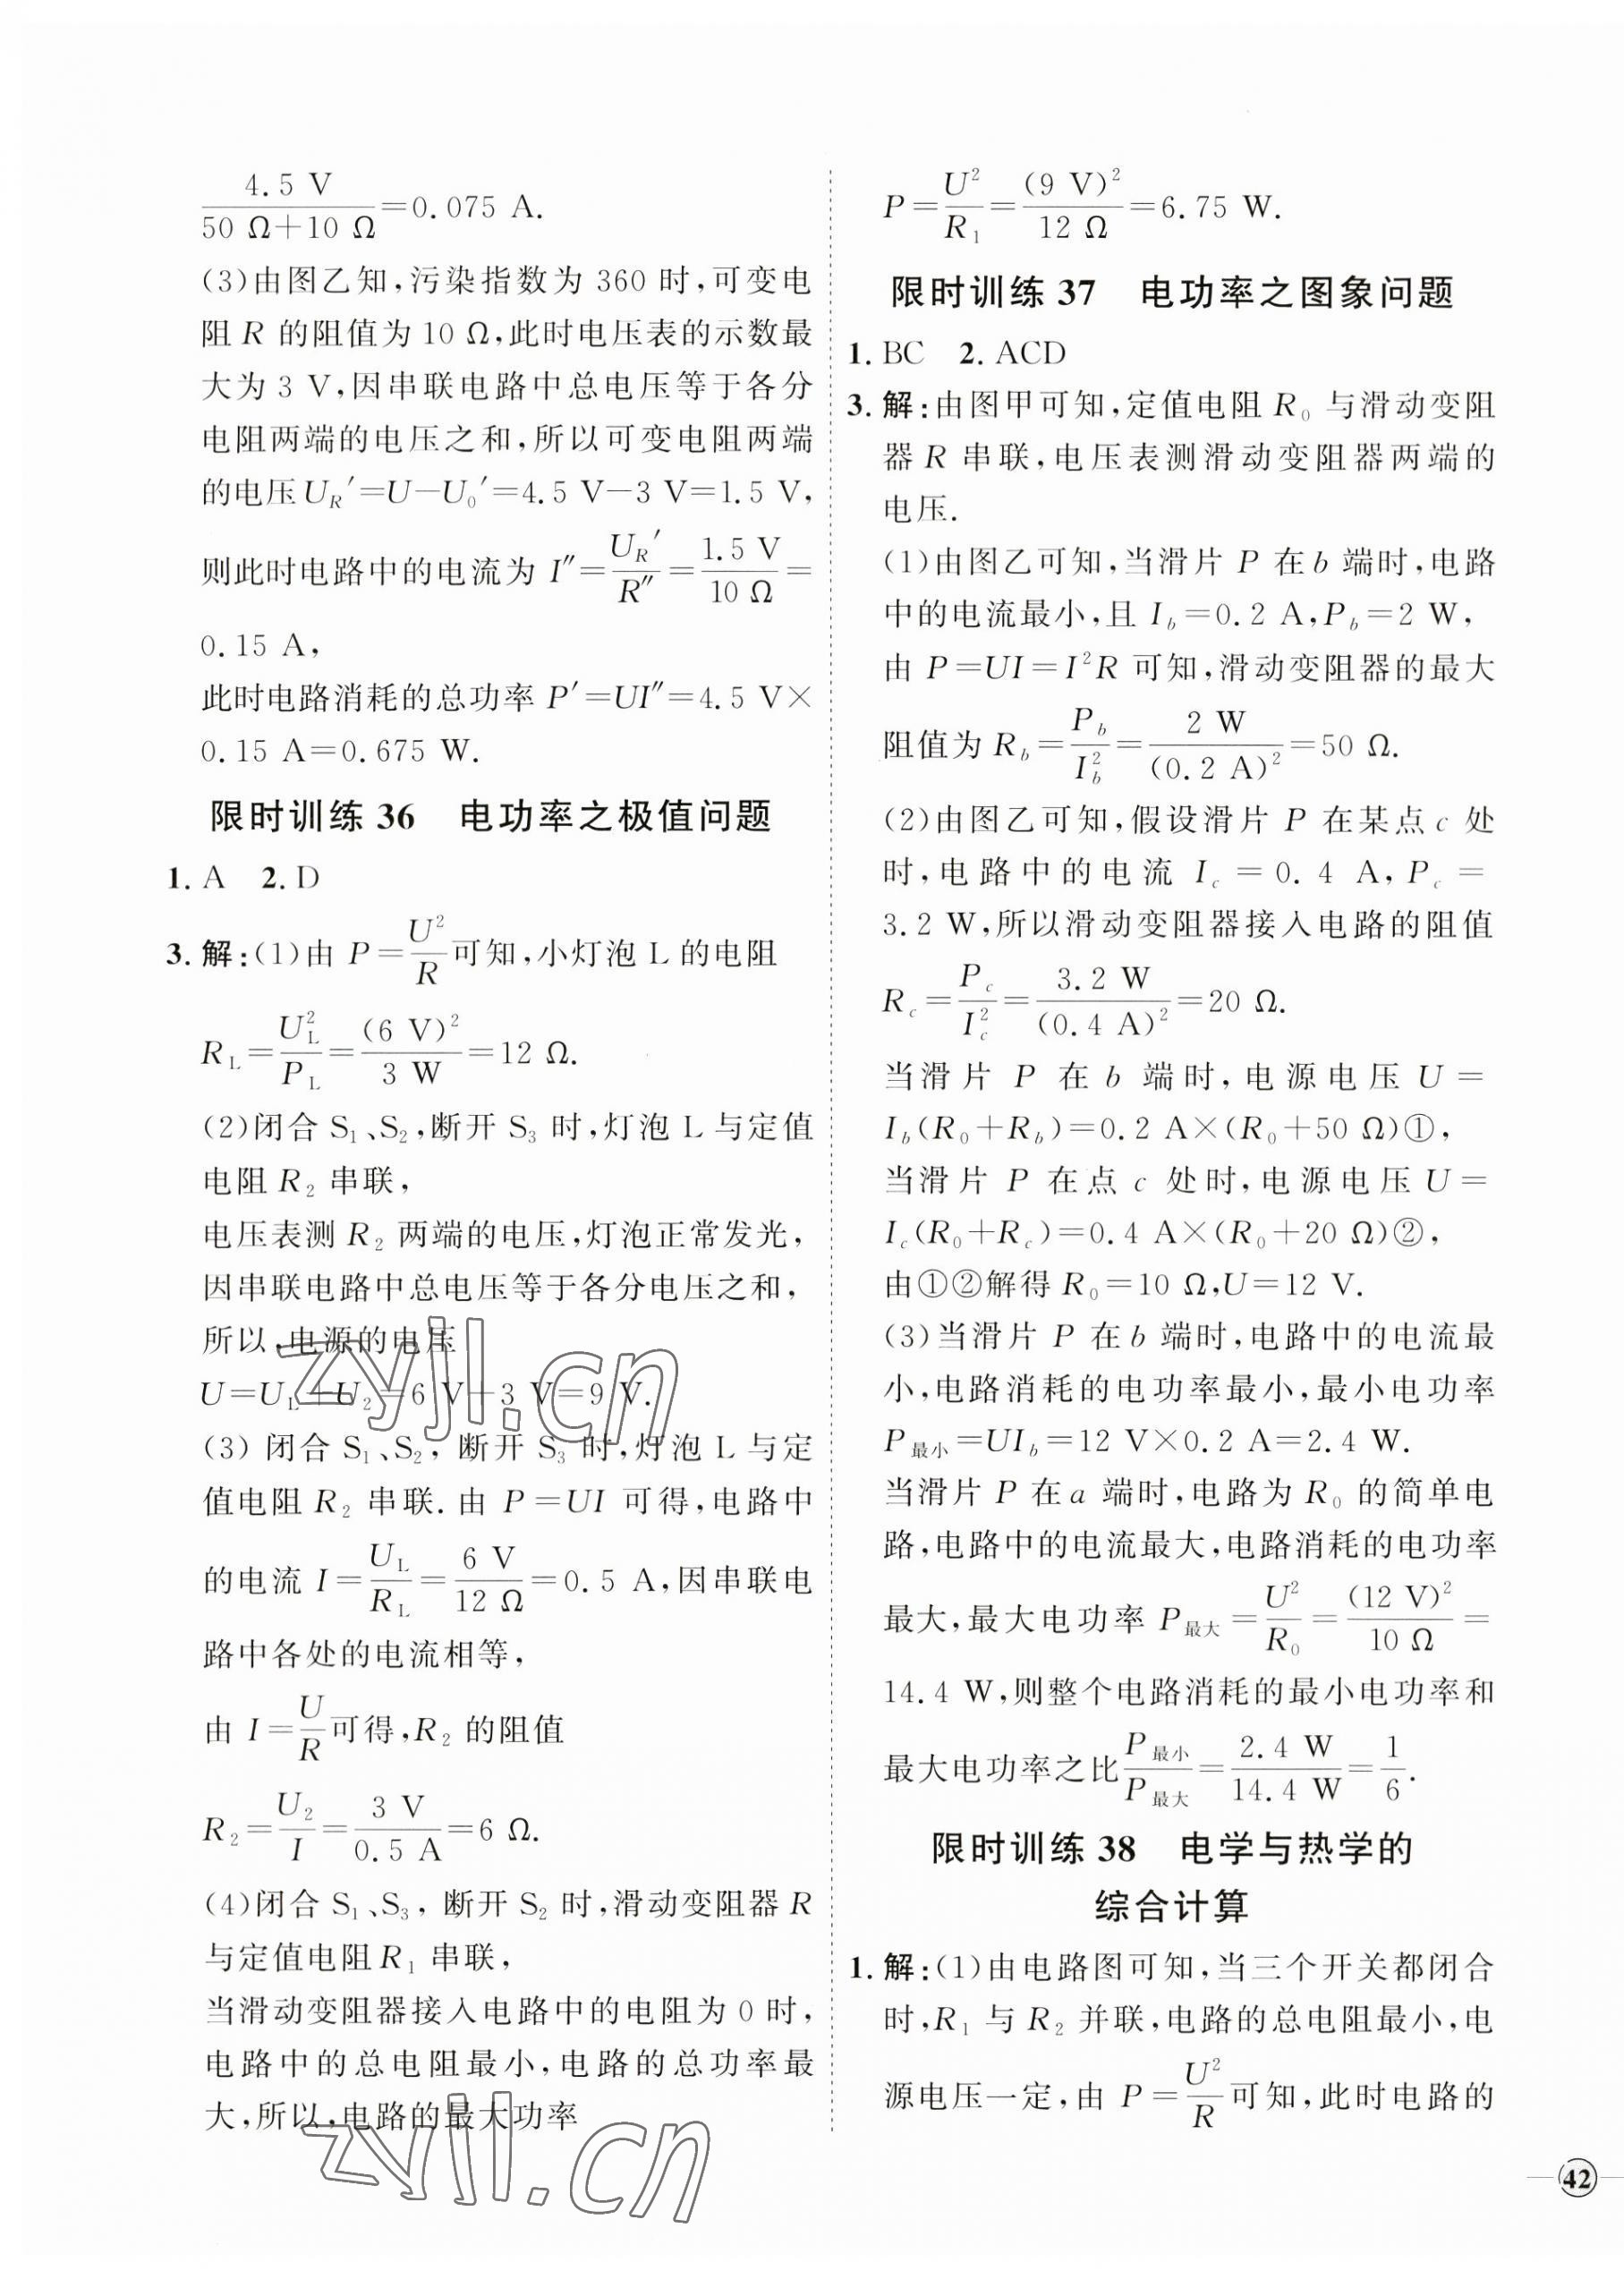 4.5 V/(50 Ω+10 Ω)=0.075 A.
(3)由图乙知,污染指数为 360 时,可变电
阻 R 的阻值为 10 Ω,此时电压表的示数最
大为 3 V,因串联电路中总电压等于各分
电阻两端的电压之和,所以可变电阻两端
的电压 U_R′=U−U₀′=4.5 V−3 V=1.5 V,
则此时电路中的电流为 I″=U_R′/R″=1.5 V/10 Ω=
0.15 A,
此时电路消耗的总功率 P′=UI″=4.5 V×
0.15 A=0.675 W.
限时训练 36 电功率之极值问题
1. A 2. D
3. 解:(1)由 P=U²/R 可知,小灯泡 L 的电阻
R_L=U_L²/P_L=(6 V)²/3 W=12 Ω.
(2)闭合 S₁、S₂,断开 S₃ 时,灯泡 L 与定值
电阻 R₂ 串联,
电压表测 R₂ 两端的电压,灯泡正常发光,
因串联电路中总电压等于各分电压之和,
所以,电源的电压
U=U_L+U₂=6 V+3 V=9 V.
(3) 闭合 S₁、S₂, 断开 S₃ 时,灯泡 L 与定
值电阻 R₂ 串联. 由 P=UI 可得,电路中
的电流 I=U_L/R_L=6 V/12 Ω=0.5 A,因串联电
路中各处的电流相等,
由 I=U/R 可得,R₂ 的阻值
R₂=U₂/I=3 V/0.5 A=6 Ω.
(4)闭合 S₁、S₃, 断开 S₂ 时,滑动变阻器 R
与定值电阻 R₁ 串联,
当滑动变阻器接入电路中的电阻为 0 时,
电路中的总电阻最小,电路的总功率最
大,所以,电路的最大功率
P=U²/R₁=(9 V)²/12 Ω=6.75 W.
限时训练 37 电功率之图象问题
1. BC 2. ACD
3. 解:由图甲可知,定值电阻 R₀ 与滑动变阻
器 R 串联,电压表测滑动变阻器两端的
电压.
(1)由图乙可知,当滑片 P 在 b 端时,电路
中的电流最小,且 I_b=0.2 A,P_b=2 W,
由 P=UI=I²R 可知,滑动变阻器的最大
阻值为 R_b=P_b/I_b²=2 W/(0.2 A)²=50 Ω.
(2)由图乙可知,假设滑片 P 在某点 c 处
时,电路中的电流 I_c=0.4 A,P_c=
3.2 W,所以滑动变阻器接入电路的阻值
R_c=P_c/I_c²=3.2 W/(0.4 A)²=20 Ω.
当滑片 P 在 b 端时,电源电压 U=
I_b(R₀+R_b)=0.2 A×(R₀+50 Ω)①,
当滑片 P 在点 c 处时,电源电压 U=
I_c(R₀+R_c)=0.4 A×(R₀+20 Ω)②,
由①②解得 R₀=10 Ω,U=12 V.
(3)当滑片 P 在 b 端时,电路中的电流最
小,电路消耗的电功率最小,最小电功率
P最小=UI_b=12 V×0.2 A=2.4 W.
当滑片 P 在 a 端时,电路为 R₀ 的简单电
路,电路中的电流最大,电路消耗的电功率
最大,最大电功率 P最大=U²/R₀=(12 V)²/10 Ω=
14.4 W,则整个电路消耗的最小电功率和
最大电功率之比 P最小/P最大=2.4 W/14.4 W=1/6.
限时训练 38 电学与热学的
综合计算
1. 解:(1)由电路图可知,当三个开关都闭合
时,R₁ 与 R₂ 并联,电路的总电阻最小,电
源电压一定,由 P=U²/R 可知,此时电路的
42
zyjl.cn
zyjl.cn